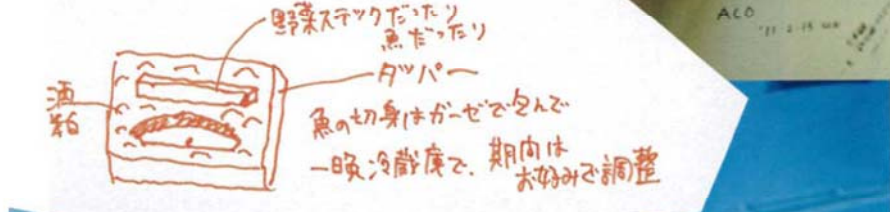 野菜ステックだったり
魚だったり
タッパー
酒
粕
魚の切身はガーゼで包んで
一晩冷蔵庫で、期間は
お好みで調整
ACO